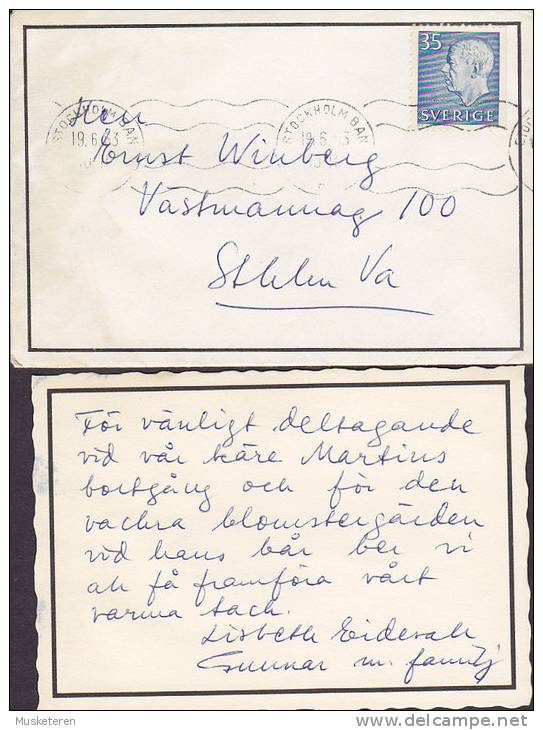 35
SVERIGE
STOCKHOLM BAN
19.6.63
STOCKHOLM BAN
19.6.63
Herr
Ernst Winberg
Västmannag 100
Sthlm Va
För vänligt deltagande
vid vår käre Martins
bortgång och för den
vackra blomstergärden
vid hans bår ber vi
att få framföra vårt
varma tack.
Lisbeth Eidevall
Gunnar m. familj
Musketeren
DELCAMPE.NET